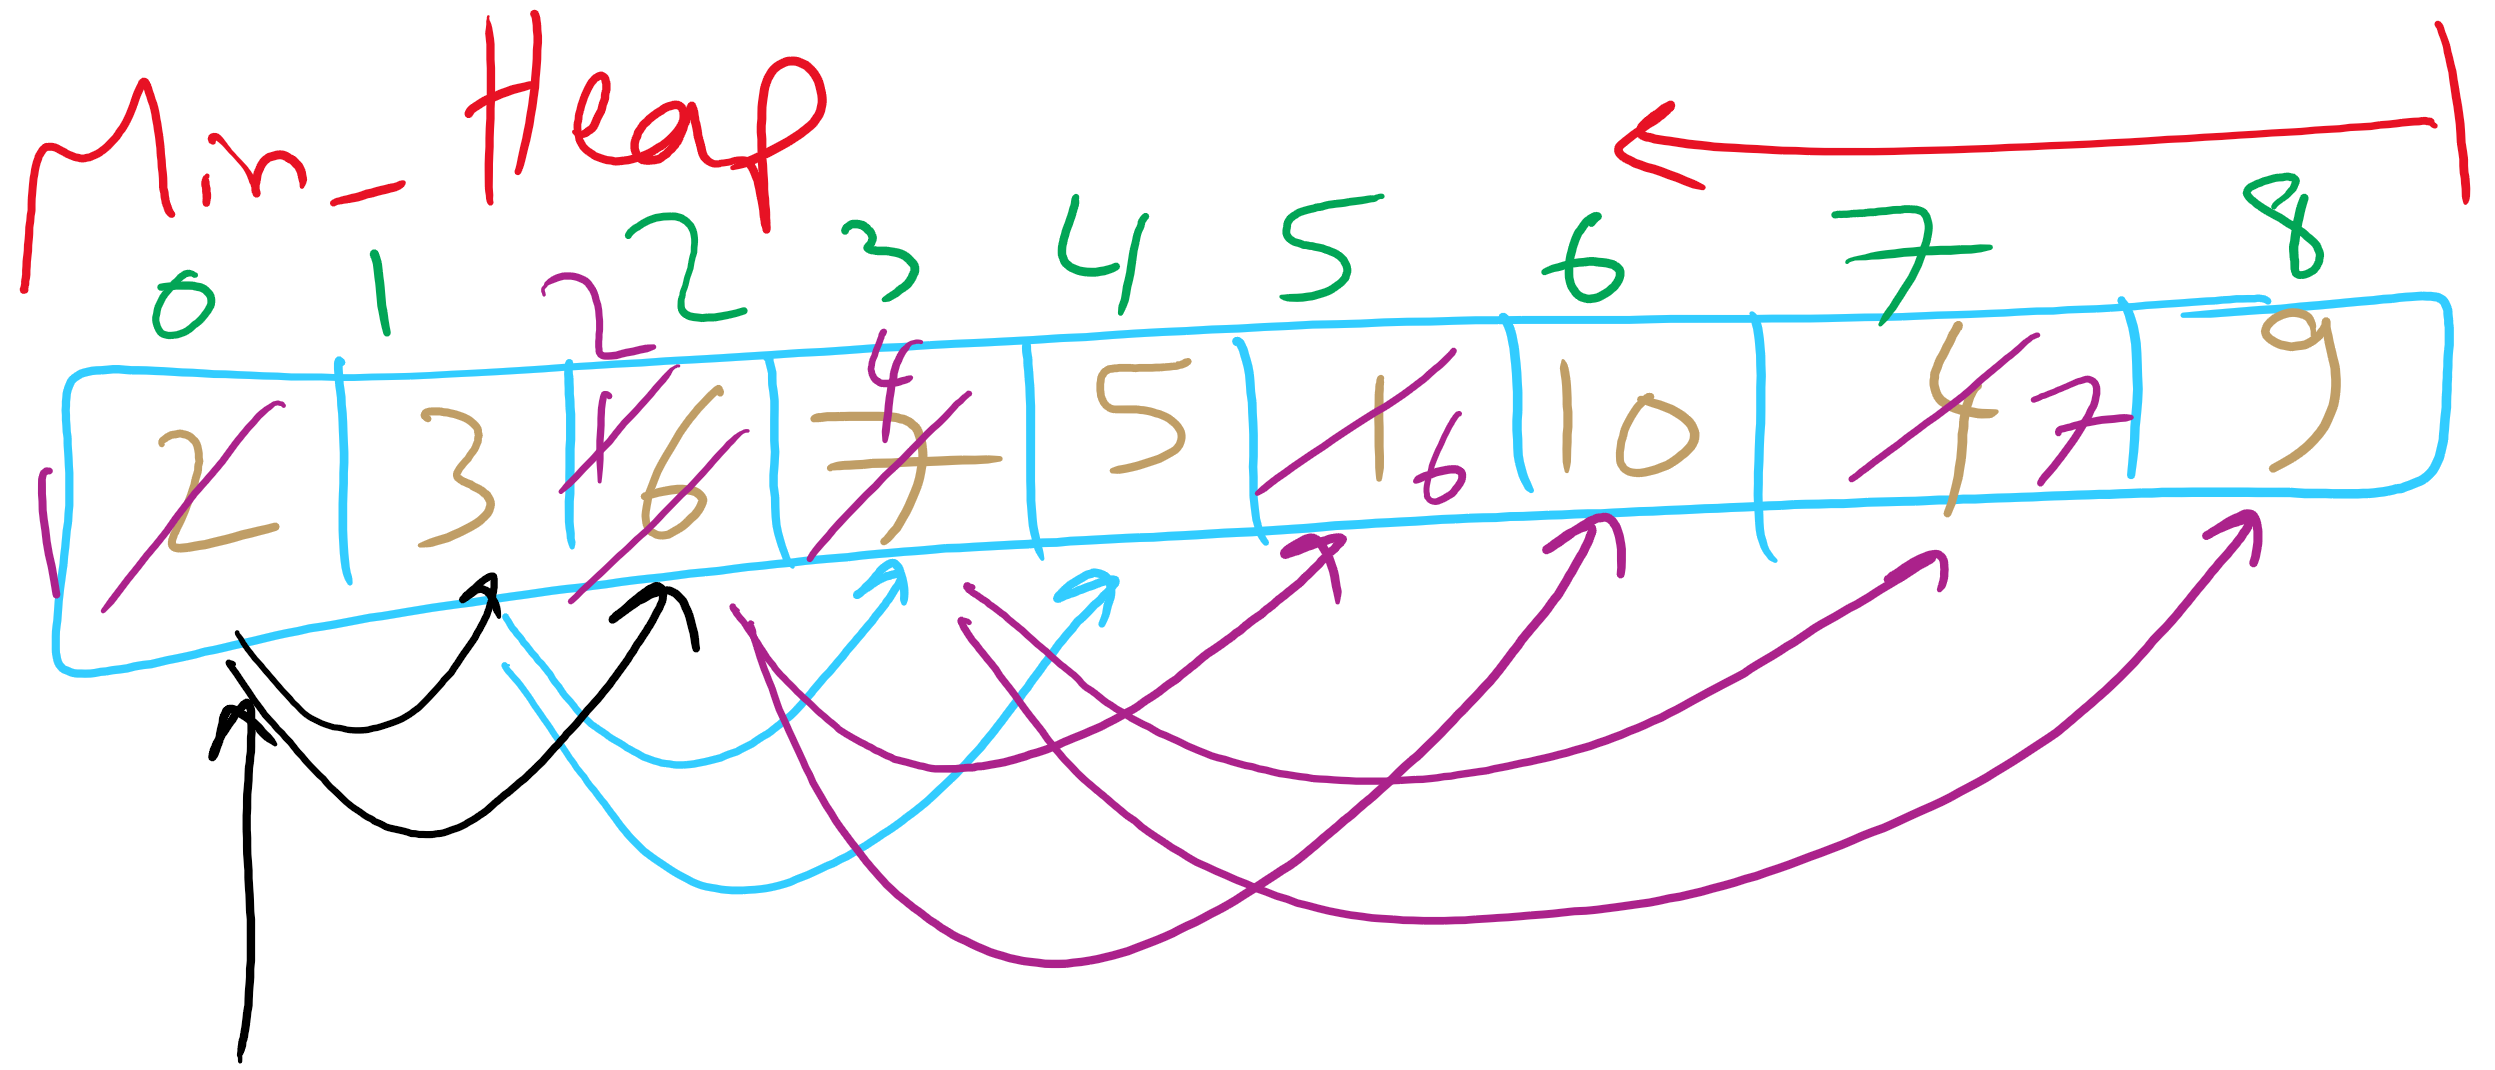 Min_Heap
0 1 2 3 4 5 6 7 8
2
1 2 3 1 6 7 4 5 6 10 4 7 9